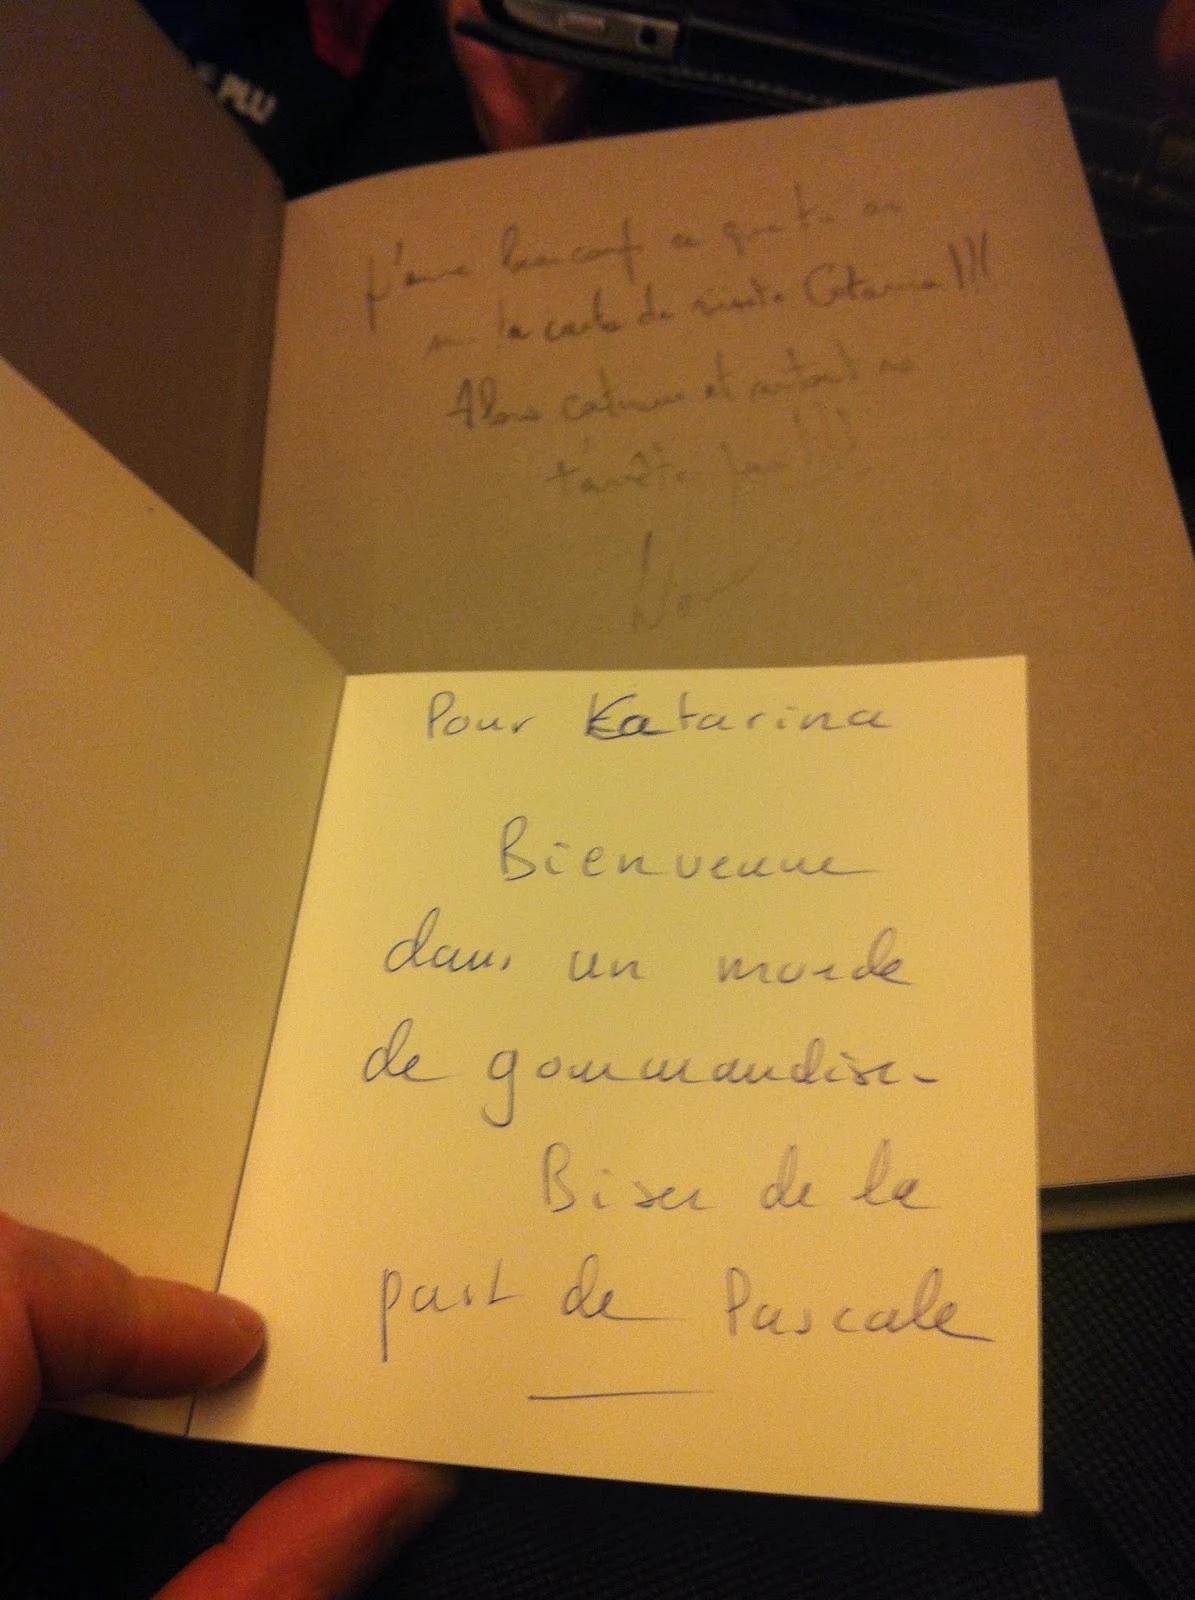 PLU
J'aime beaucoup ce que tu
la carte de Catarina !!!
Alors continue et surtout ne
t'arrête pas !!!
Pour Katarina
Bienvenue
dans un monde
de gourmandise.
Bises de la
part de Pascale